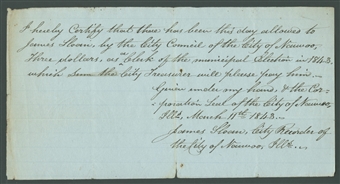 I hereby Certify that there has been this day allowed to
James Sloan, by the City Council of the City of Nauvoo,
Three dollars, as Clerk of the municipal Election in 1843,
which sum the City Treasurer will please pay him.
Given under my hand, & the Cor-
poration Seal of the City of Nauvoo,
Ills, March 11th 1843.
James Sloan, City Recorder of
the City of Nauvoo, Ills.